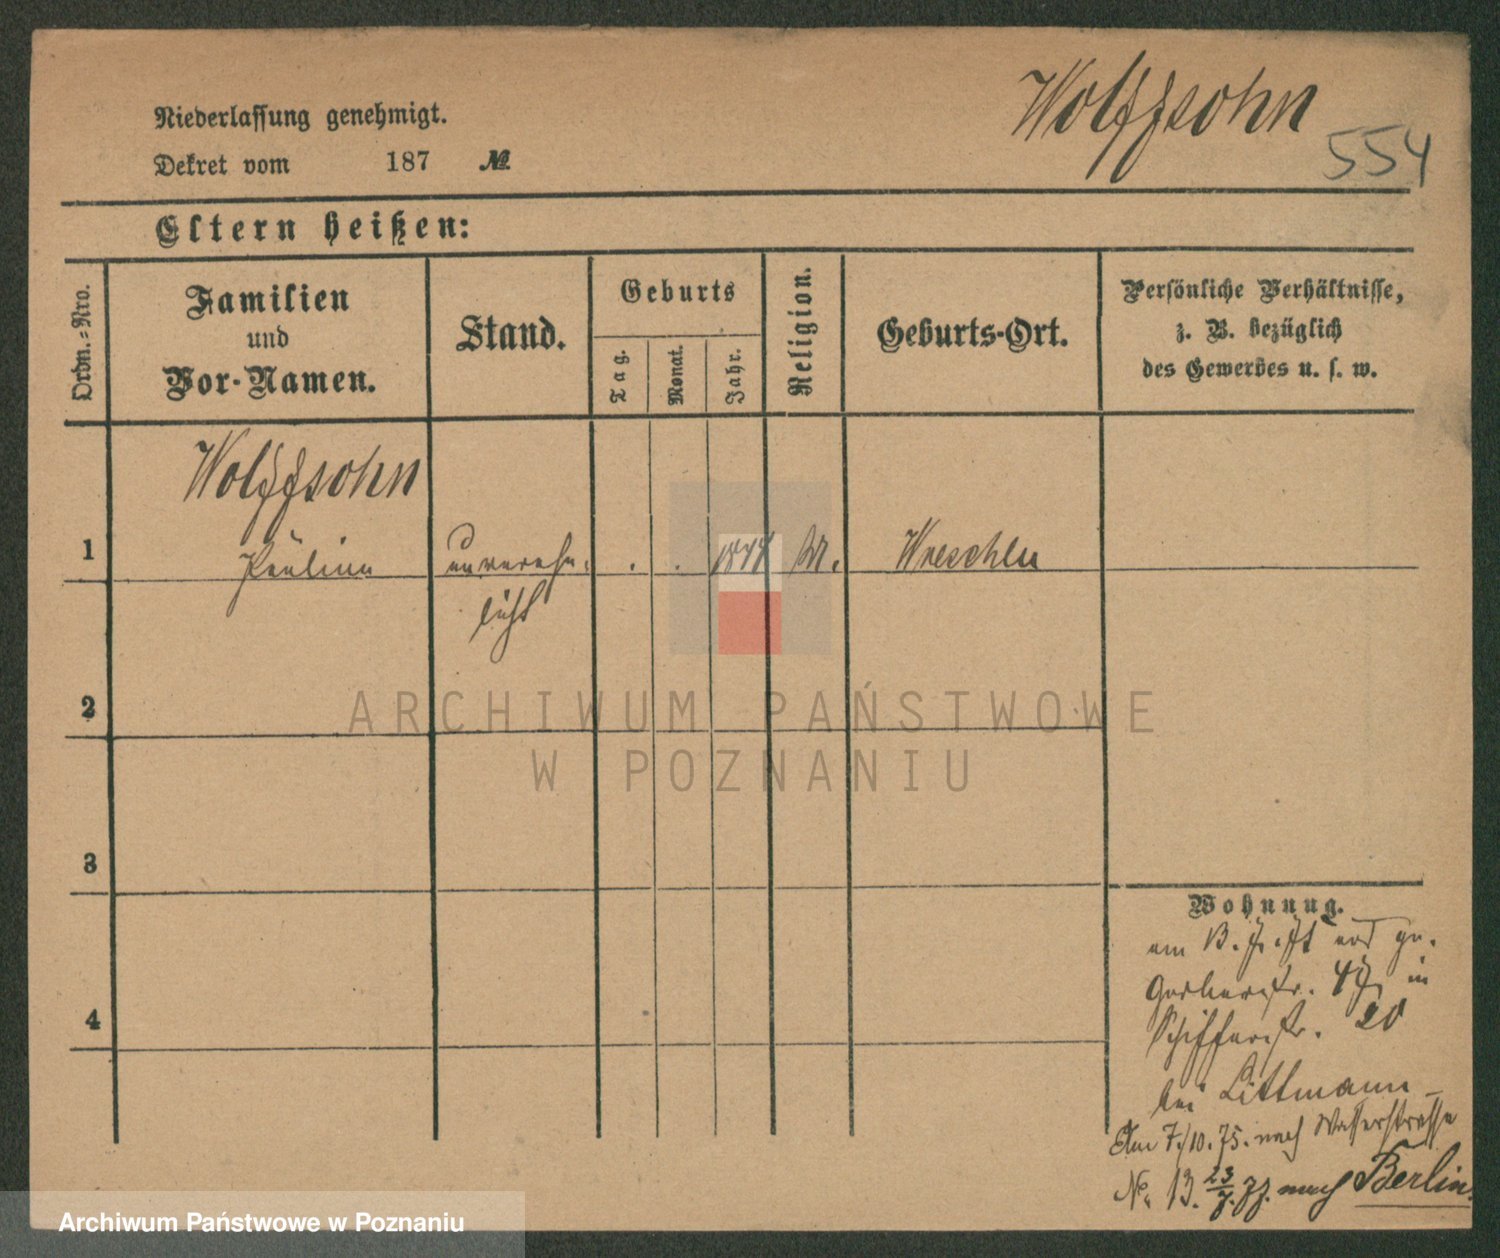 Wolffsohn
554
Niederlassung genehmigt.
Dekret vom 187 №
Eltern heißen:
Ordn.=Nro.
Familien
und
Vor-Namen.
Stand.
Geburts
Tag.
Monat.
Jahr.
Religion.
Geburts-Ort.
Persönliche Verhältnisse,
z. B. bezüglich
des Gewerbes u. s. w.
Wolffsohn
1 Pauline unverehe- . . 1844 M. Wreschen
licht
2
3
4
Wohnung.
Gerberstr. in
Schifferstr. 20
bei Littmann
Am 7./10.75. nach Wasserstrasse
No. 13. 23/7. 77. nach Berlin.
ARCHIWUM PAŃSTWOWE
W POZNANIU
Archiwum Państwowe w Poznaniu